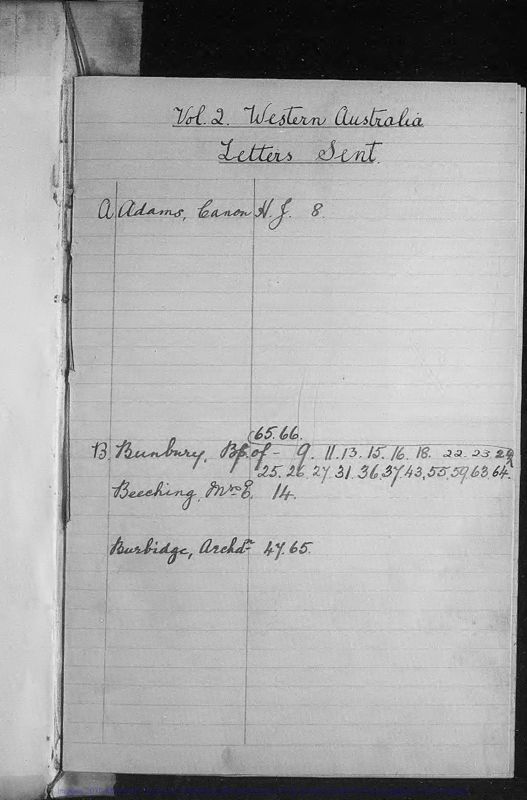 Vol. 2. Western Australia
Letters Sent.
A Adams, Canon H. J. 8.
65. 66.
B. Bunbury, Bp. of - 9. 11. 13. 15. 16. 18. 22. 23. 24
25. 26. 27. 31. 36, 37. 43, 55, 59, 63, 64.
Beeching, Mrs E. 14.
Burbidge, Archdn 47. 65.